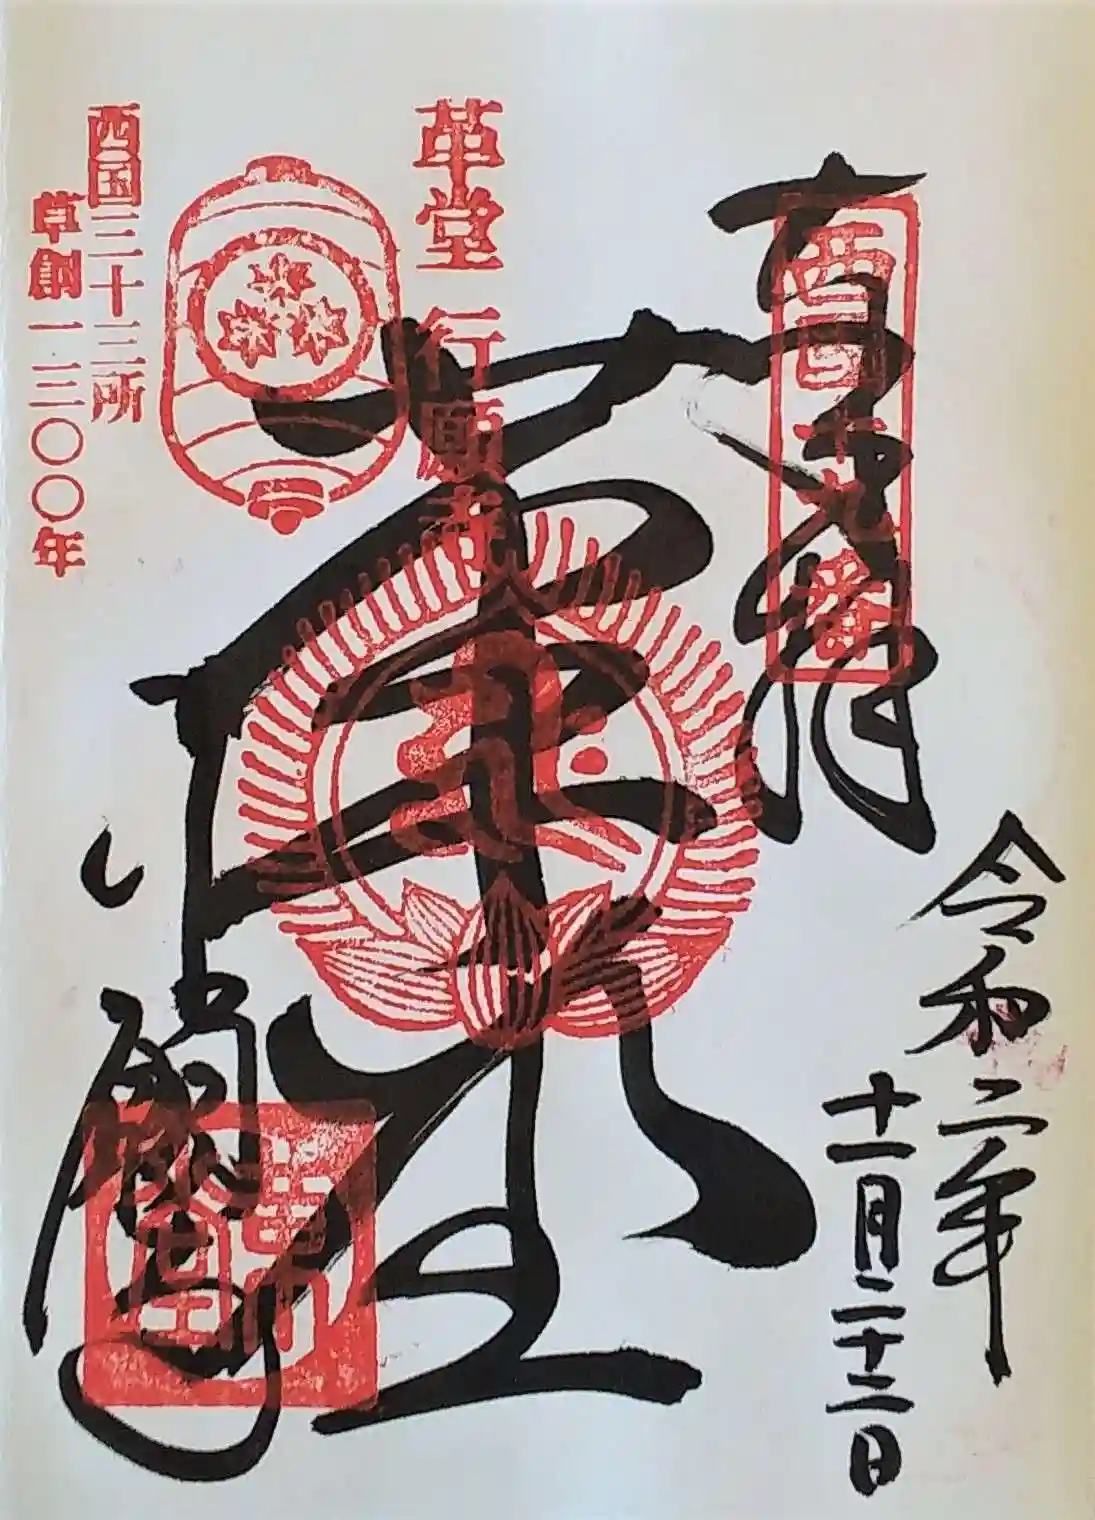 奉拝
西国十九番
令和二年
十一月二十三日
革堂
行願寺
革堂
西国三十三所
草創一三〇〇年
行願寺
革堂